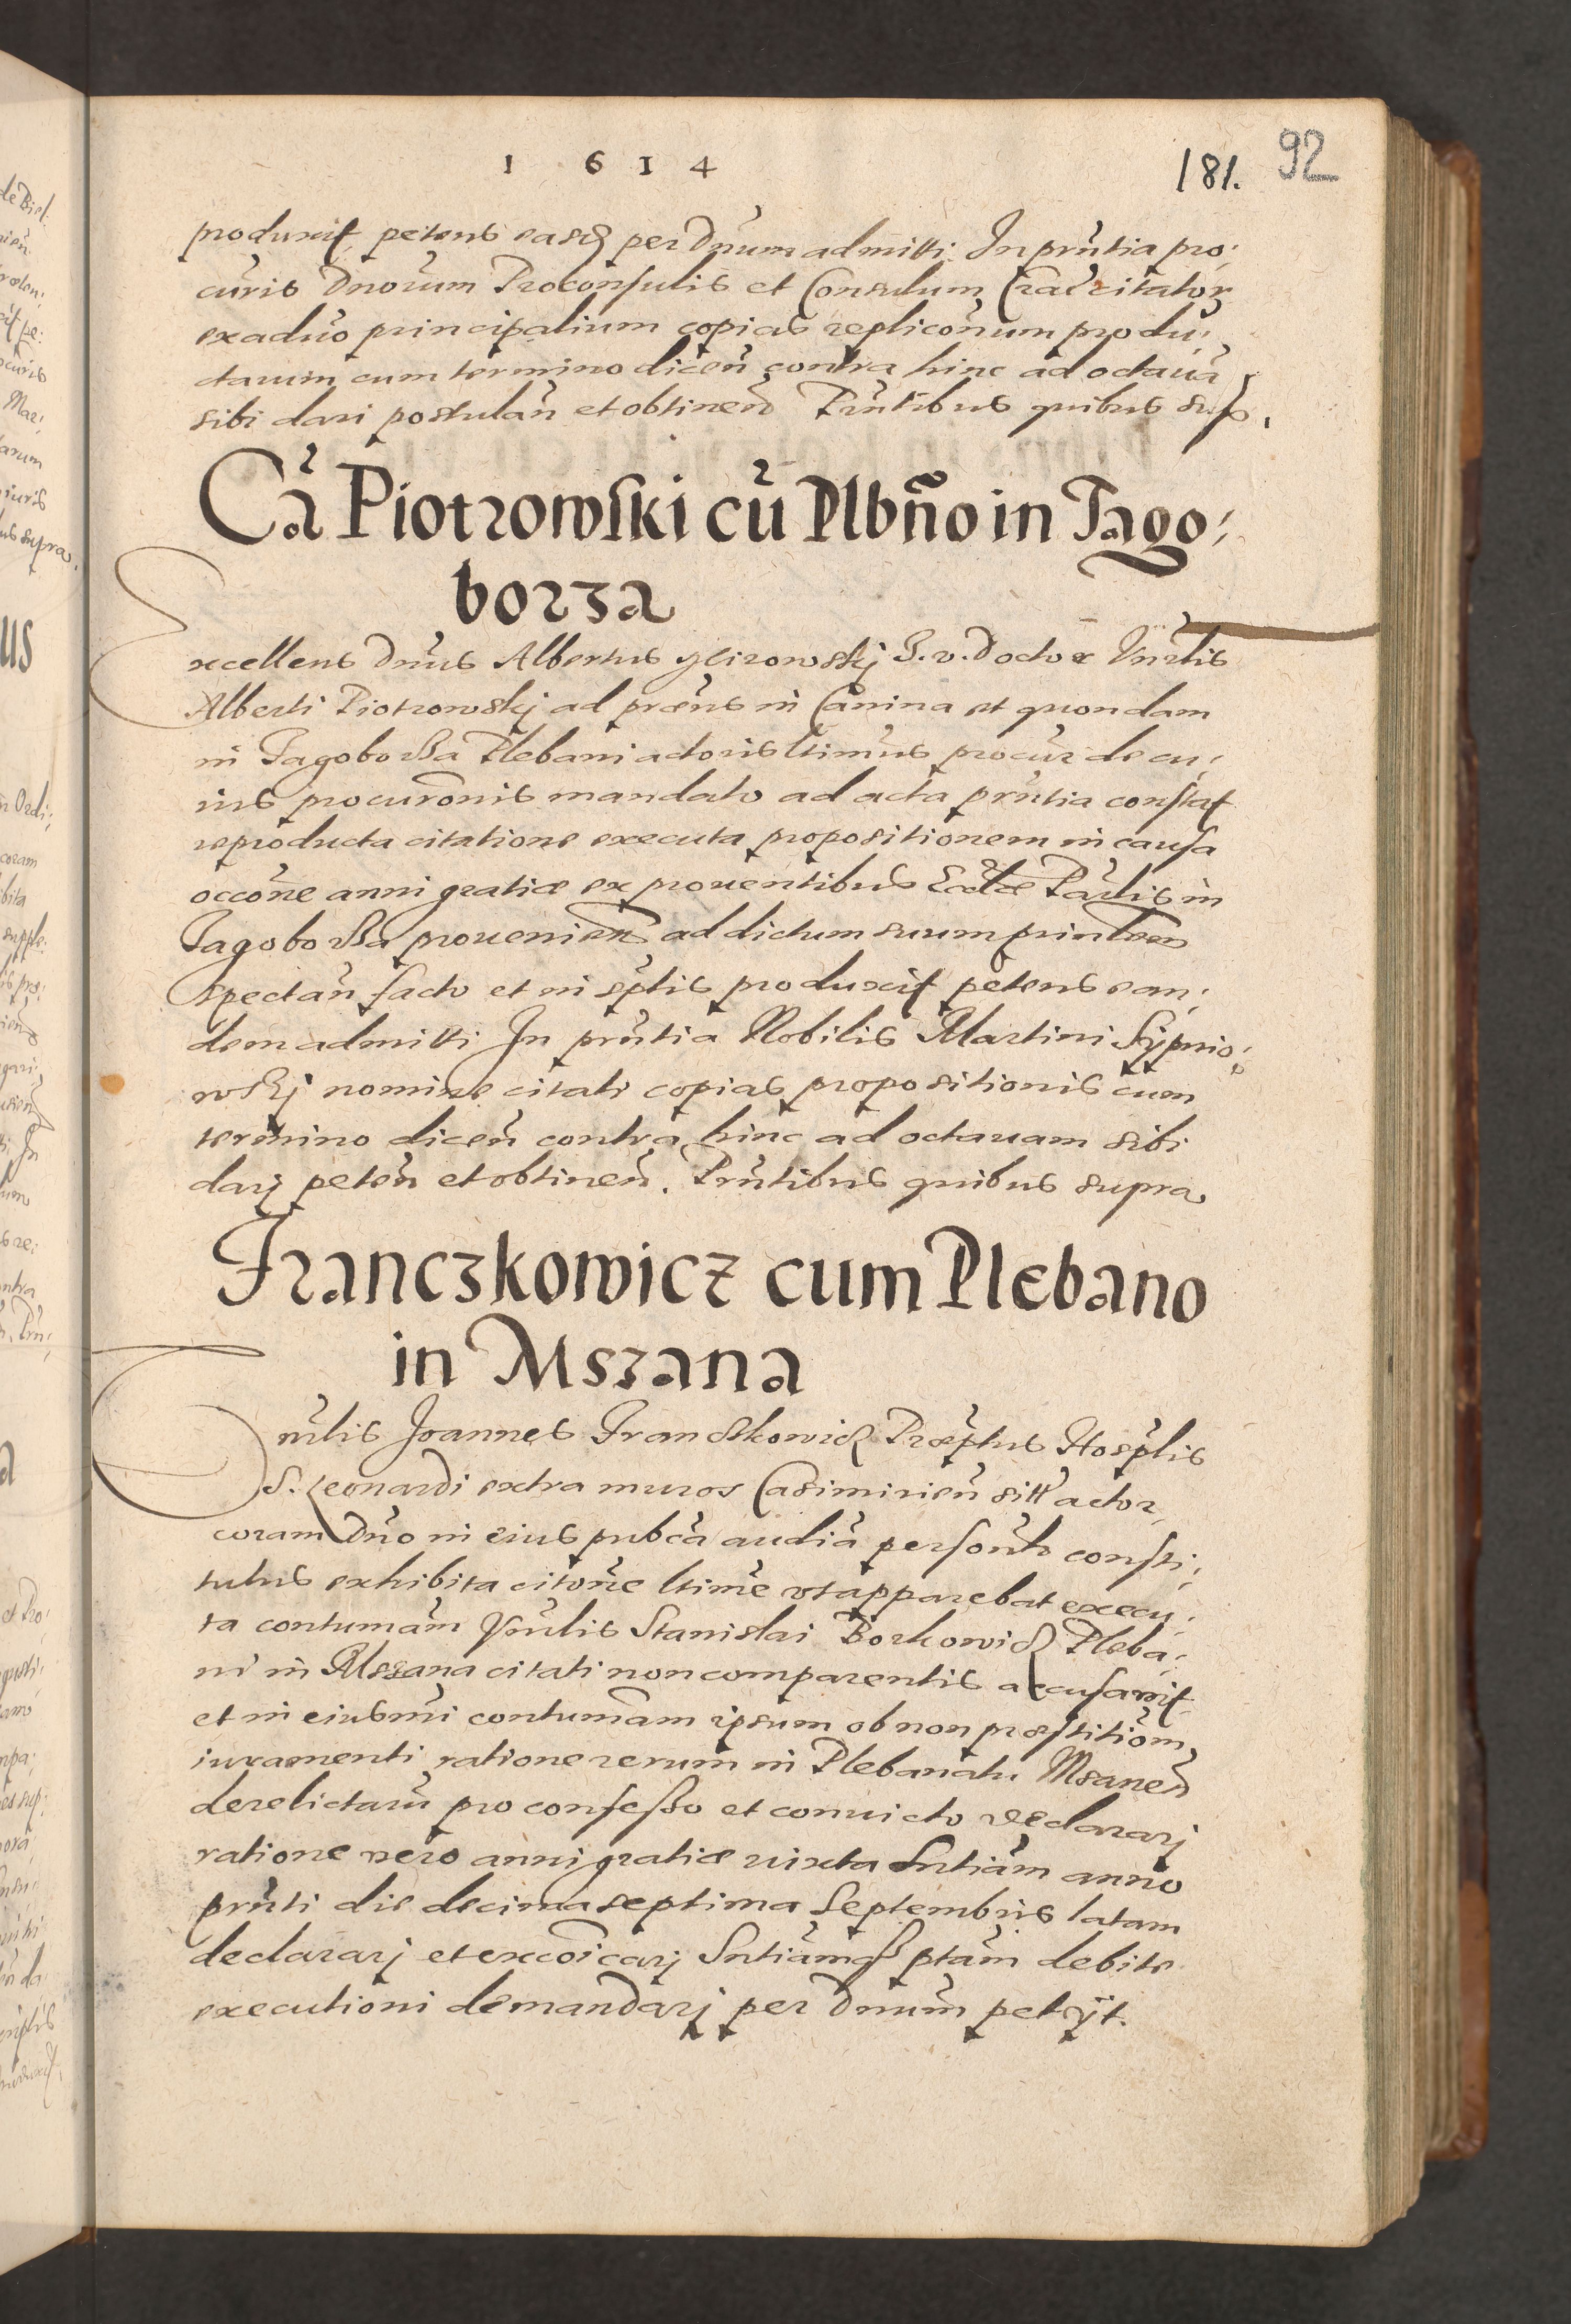 1 6 1 4
181. 92
produxit petens easdem per Dnum admitti. In pnntia pro:
curis Dnorum Proconsulis et Consulum Crac citator
ex aduo principalium copias repliconum produ:
ctarum cum termino dicen contra hinc ad octaua
sibi dari postulan et obtinen Pnntibus quibus sup.
Ca Piotrowski cu Plbno in Jago:
borza
Excellens Dnus Albertus J. V. Doctor Vnrlis
Alberti Piotrowskj ad prens in Canina et quondam
in Jagoborza Plebani actoris ltimus procur de cu:
ius procuronis mandato ad acta pnntia constat
reproducta citatione executa propositionem in causa
occone anni gratiæ ex prouentibus Ecclæ Parlis in
Jagoborza prouenien ad dictum suum prinlem
spectan facto et in sptis produxit petens ean:
dem admitti In pnntia Nobilis Martini Sypnio:
wskj nomine citati copias propositionis cum
termino dicen contra hinc ad octauam sibi
darj peten et obtinen. Pnntibus quibus supra
Franczkowicz cum Plebano
in Mszana
Vnrlis Joannes Franczkowicz Præptus Hosplis
S. Leonardi extra muros Casimirien sitt actor
coram Dno in eius pubca audia personlr consti:
tutus exhibita citone ltime vt apparebat execu:
ta contumam Vnrlis Stanislai Borkowicz Pleba:
ni in Mszana citati non comparentis accusauit
et in eiusmi contumam ipsum ob non præstitiom
iuramenti ratione rerum in Plebanatu Msanen
derelictaru pro confesso et conuicto declararj
ratione vero anni gratiæ iuxta Sntiam anno
pnnti die decima septima Septembris latam
declararj et excoicarj Sntiamq ptam debite
executioni demandarj per Dnum petijt.